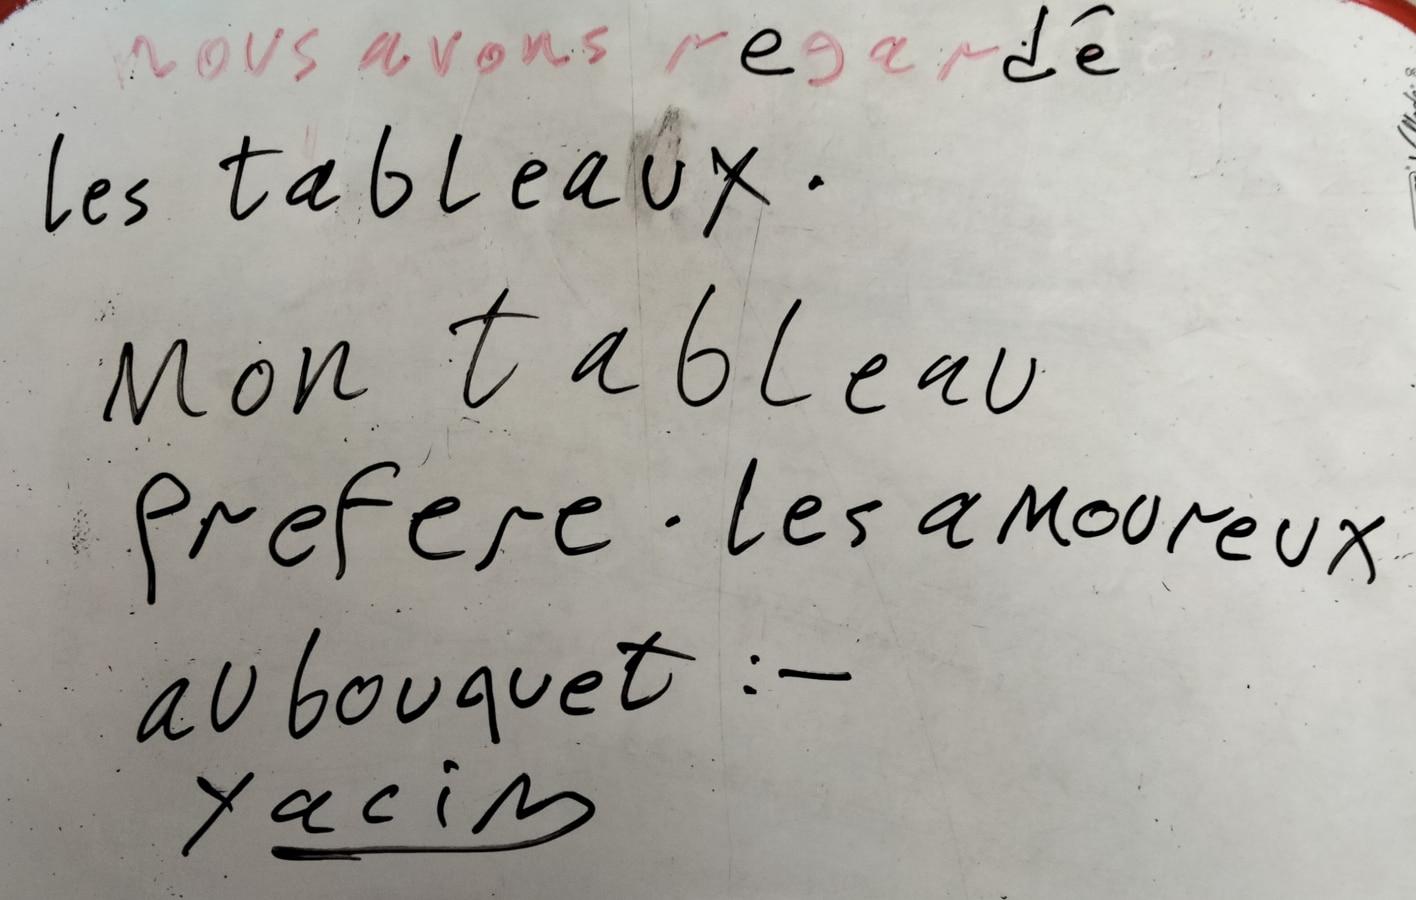 nous avons regardé
les tableaux.
Mon tableau
prefere . les amoureux
au bouquet :-
Yacim